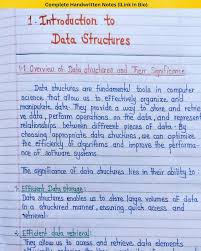 Complete Handwritten Notes (Link in Bio)
1. Introduction to
Data Structures
1.1 Overview of Data structures and Their Significance
Data structures are fundamental tools in computer
science that allow us to effectively organize and
manipulate data. They provide a way to store and retrie
ve data, perform operations on the data, and represent
relationships between different pieces of data. By
choosing appropriate data structures, we can optimize
the efficiency of algorithms and improve the performa-
nce of software systems.
The significance of data structures lies in their ability to
1. Efficient Data storage:
Data structures enables us to store large volumes of data
in a structured manner, ensuring quick access and
retrieval.
2. Efficient data retrieval:
They allow us to access and retrieve data elements